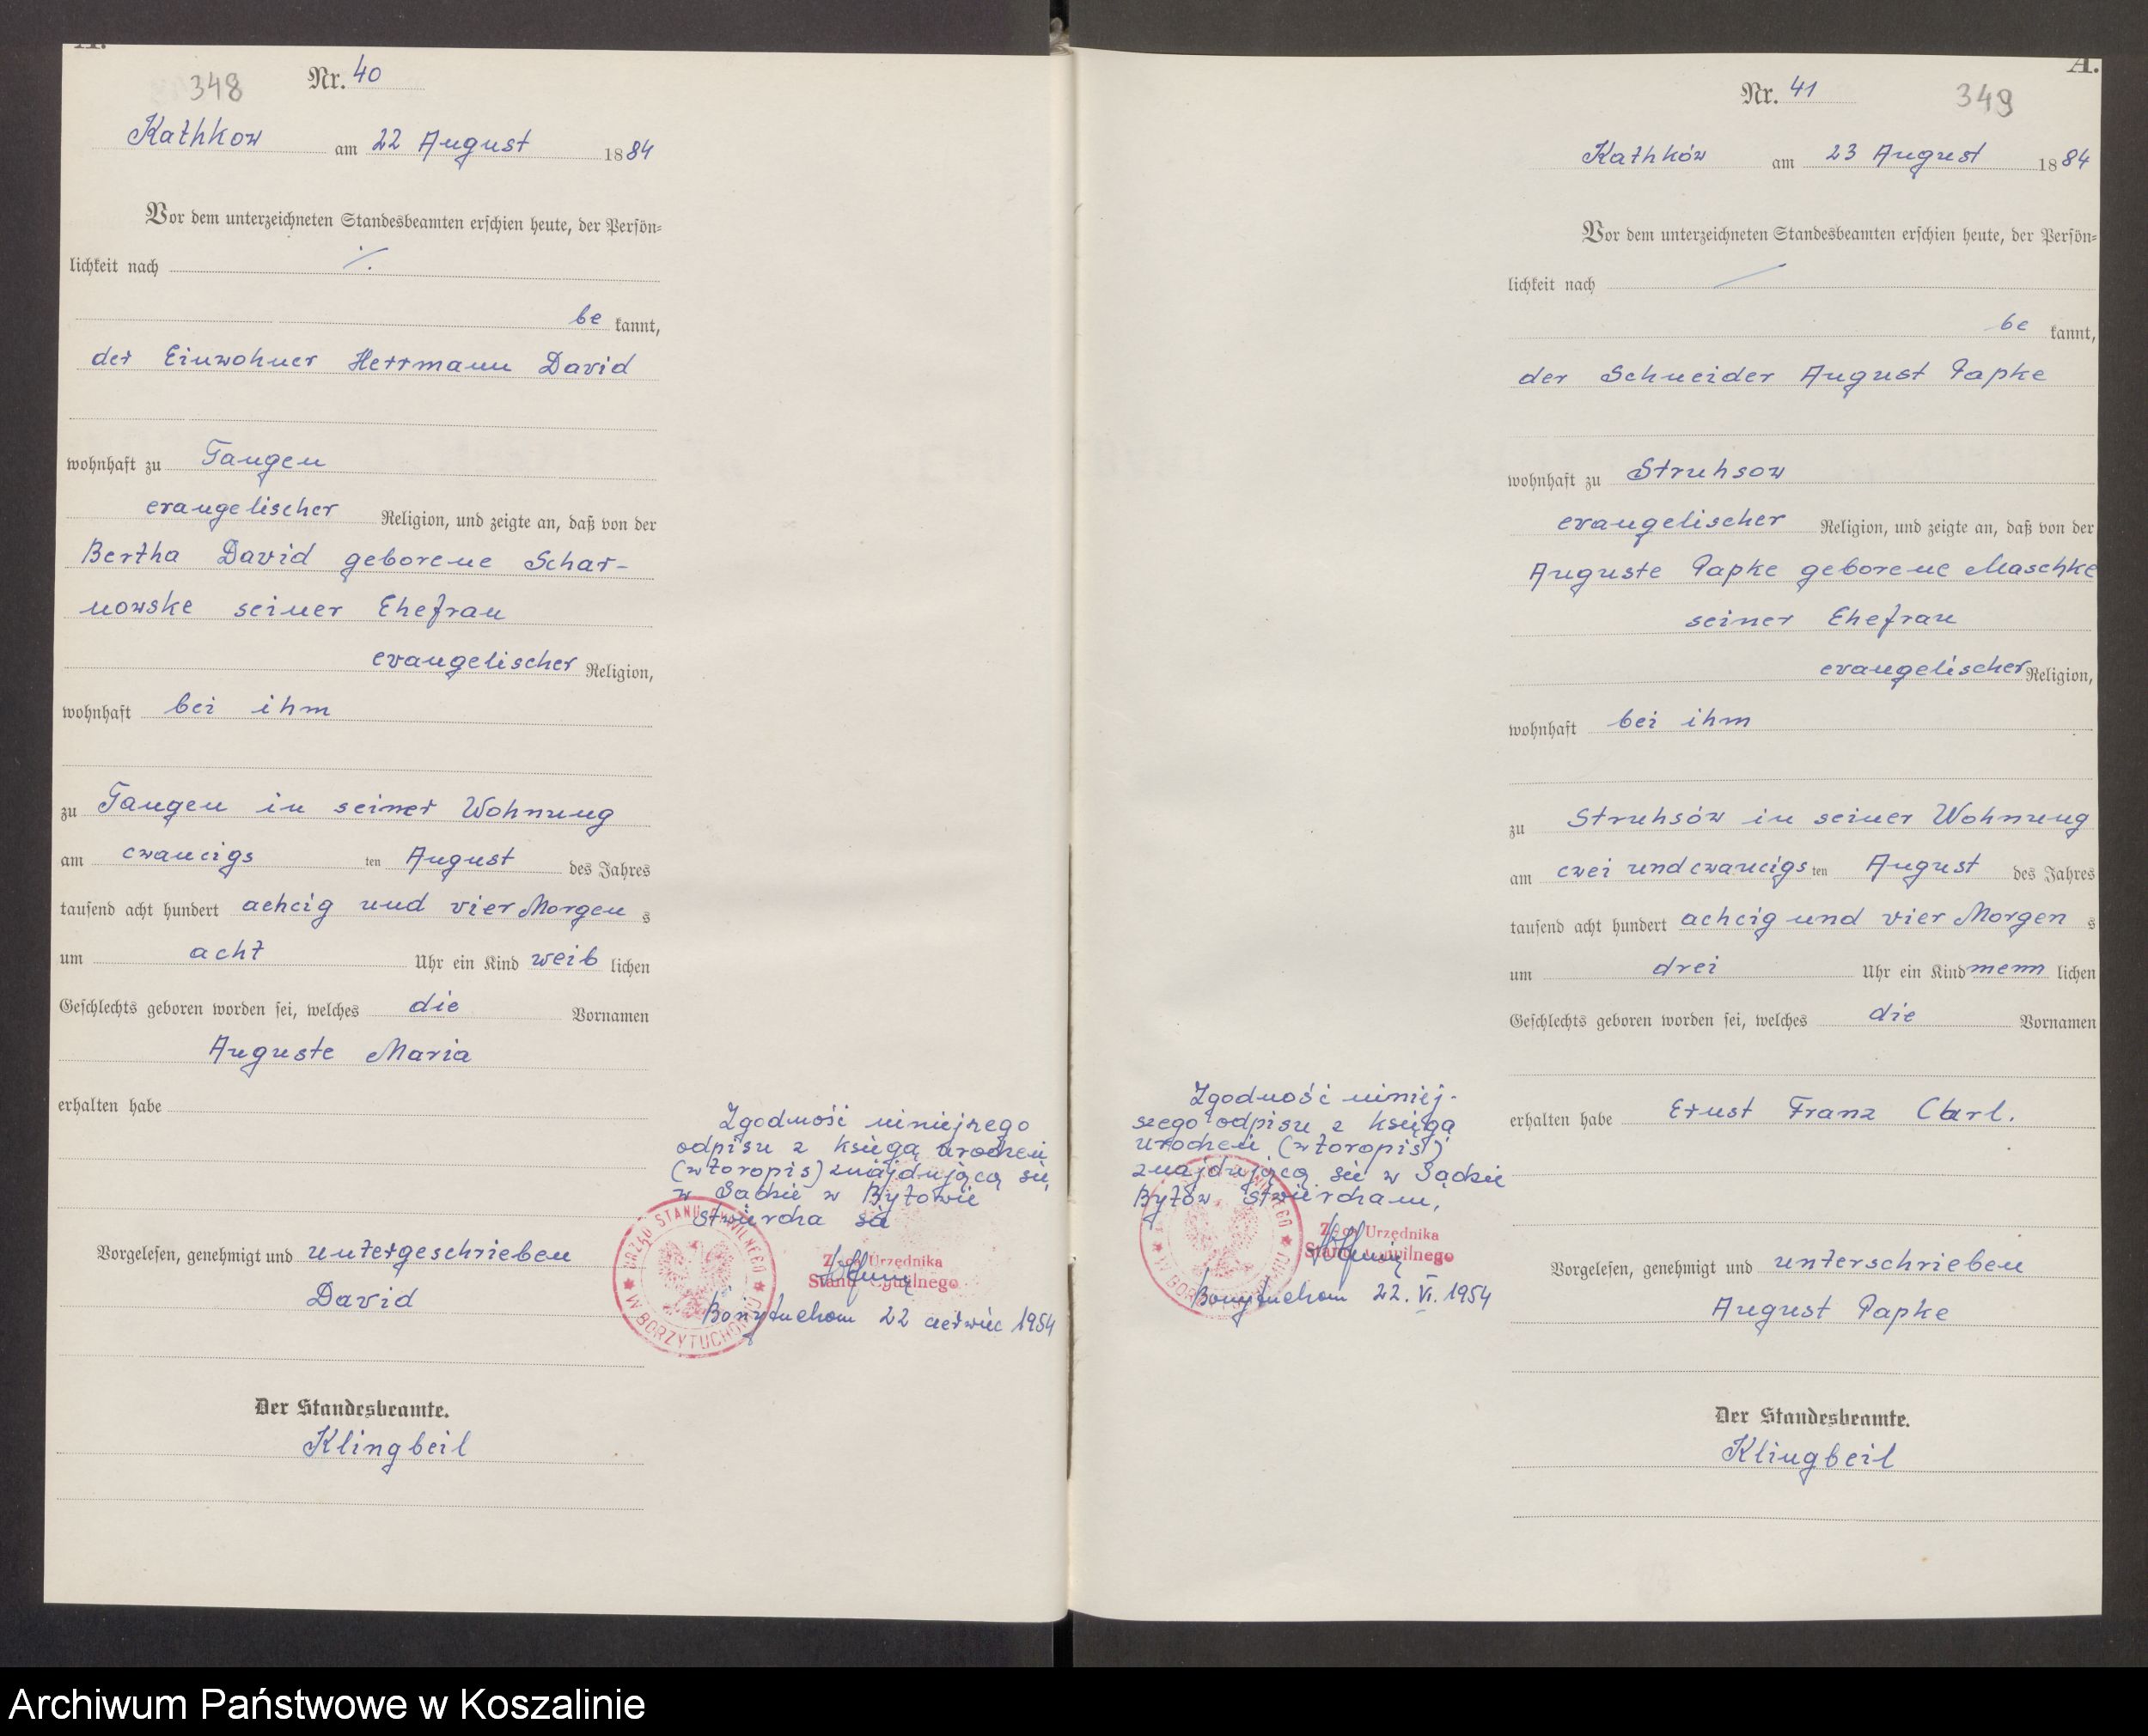 A.
348
Nr. 40
Kathkow am 22 August 1884
Vor dem unterzeichneten Standesbeamten erschien heute, der Persön-
lichkeit nach ·/.
be kannt,
der Einwohner Herrmann David
wohnhaft zu Tangen
evangelischer Religion, und zeigte an, daß von der
Bertha David geborene Schar-
nowske seiner Ehefrau
evangelischer Religion,
wohnhaft bei ihm
zu Tangen in seiner Wohnung
am cwancigs ten August des Jahres
tausend acht hundert achcig und vier Morgen s
um acht Uhr ein Kind weib lichen
Geschlechts geboren worden sei, welches die Vornamen
Auguste Maria
erhalten habe
Vorgelesen, genehmigt und untergeschrieben
David
Der Standesbeamte.
Klingbeil
Zgodność niniejszego
odpisu z księgą urodzeń
(wtoropis) znajdującą się
w Sądzie w Bytowie
stwierdza się
URZĄD STANU CYWILNEGO
W BORZYTUCHOMIU
Urzędnika
Stanu Cywilnego
Borzytuchom 22 czerwiec 1954
A.
Nr. 41
349
Kathków am 23 August 1884
Vor dem unterzeichneten Standesbeamten erschien heute, der Persön-
lichkeit nach
be kannt,
der Schneider August Papke
wohnhaft zu Struhsow
evangelischer Religion, und zeigte an, daß von der
Auguste Papke geborene Maschke
seiner Ehefrau
evangelischer Religion,
wohnhaft bei ihm
zu Struhsów in seiner Wohnung
am cwei und cwancigs ten August des Jahres
tausend acht hundert achcig und vier Morgen s
um drei Uhr ein Kind menn lichen
Geschlechts geboren worden sei, welches die Vornamen
erhalten habe Ernst Franz Carl.
Vorgelesen, genehmigt und unterschrieben
August Papke
Der Standesbeamte.
Klingbeil
Zgodność niniej-
szego odpisu z księgą
urodzeń (wtoropis)
znajdującą się w Sądzie
Bytów stwierdzam,
Urzędnika
Stanu Cywilnego
Borzytuchom 22. VI. 1954
Archiwum Państwowe w Koszalinie